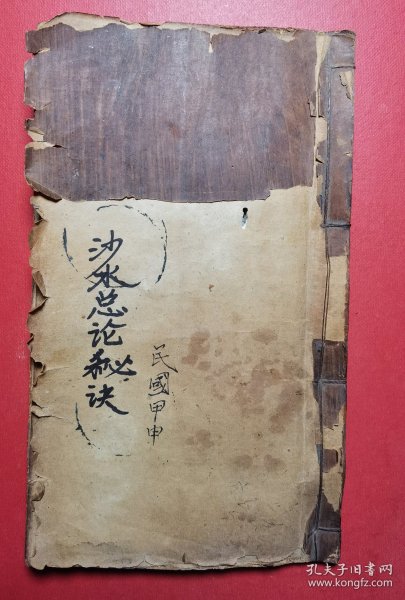 沙水总论秘诀
民國甲申
孔夫子旧书网
www.kongfz.com